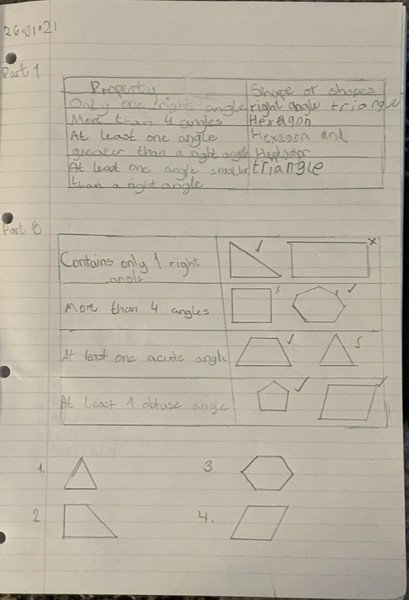 26.01.21
Part 1
Property Shape or shapes
Only one right angle right angle triangle
More than 4 angles Hexagon
At least one angle Hexagon and
greater than a right angle
At least one angle smaller triangle
than a right angle
Part B
Contains only 1 right
angle
More than 4 angles
At least one acute angle
At least 1 obtuse angle
1. 3.
2 4.